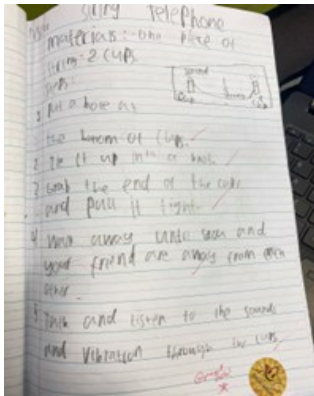 String Telephone
Materials: one piece of
string 2 cups
Steps:
sound
1 Put a hole at
the bottom of cups.
2 Tie it up into a knot
3 the end of the cups
and pull it tight.
4 walk away until you and
your friend are away from each
other.
5 Talk and listen to the sounds
and vibration through the cups